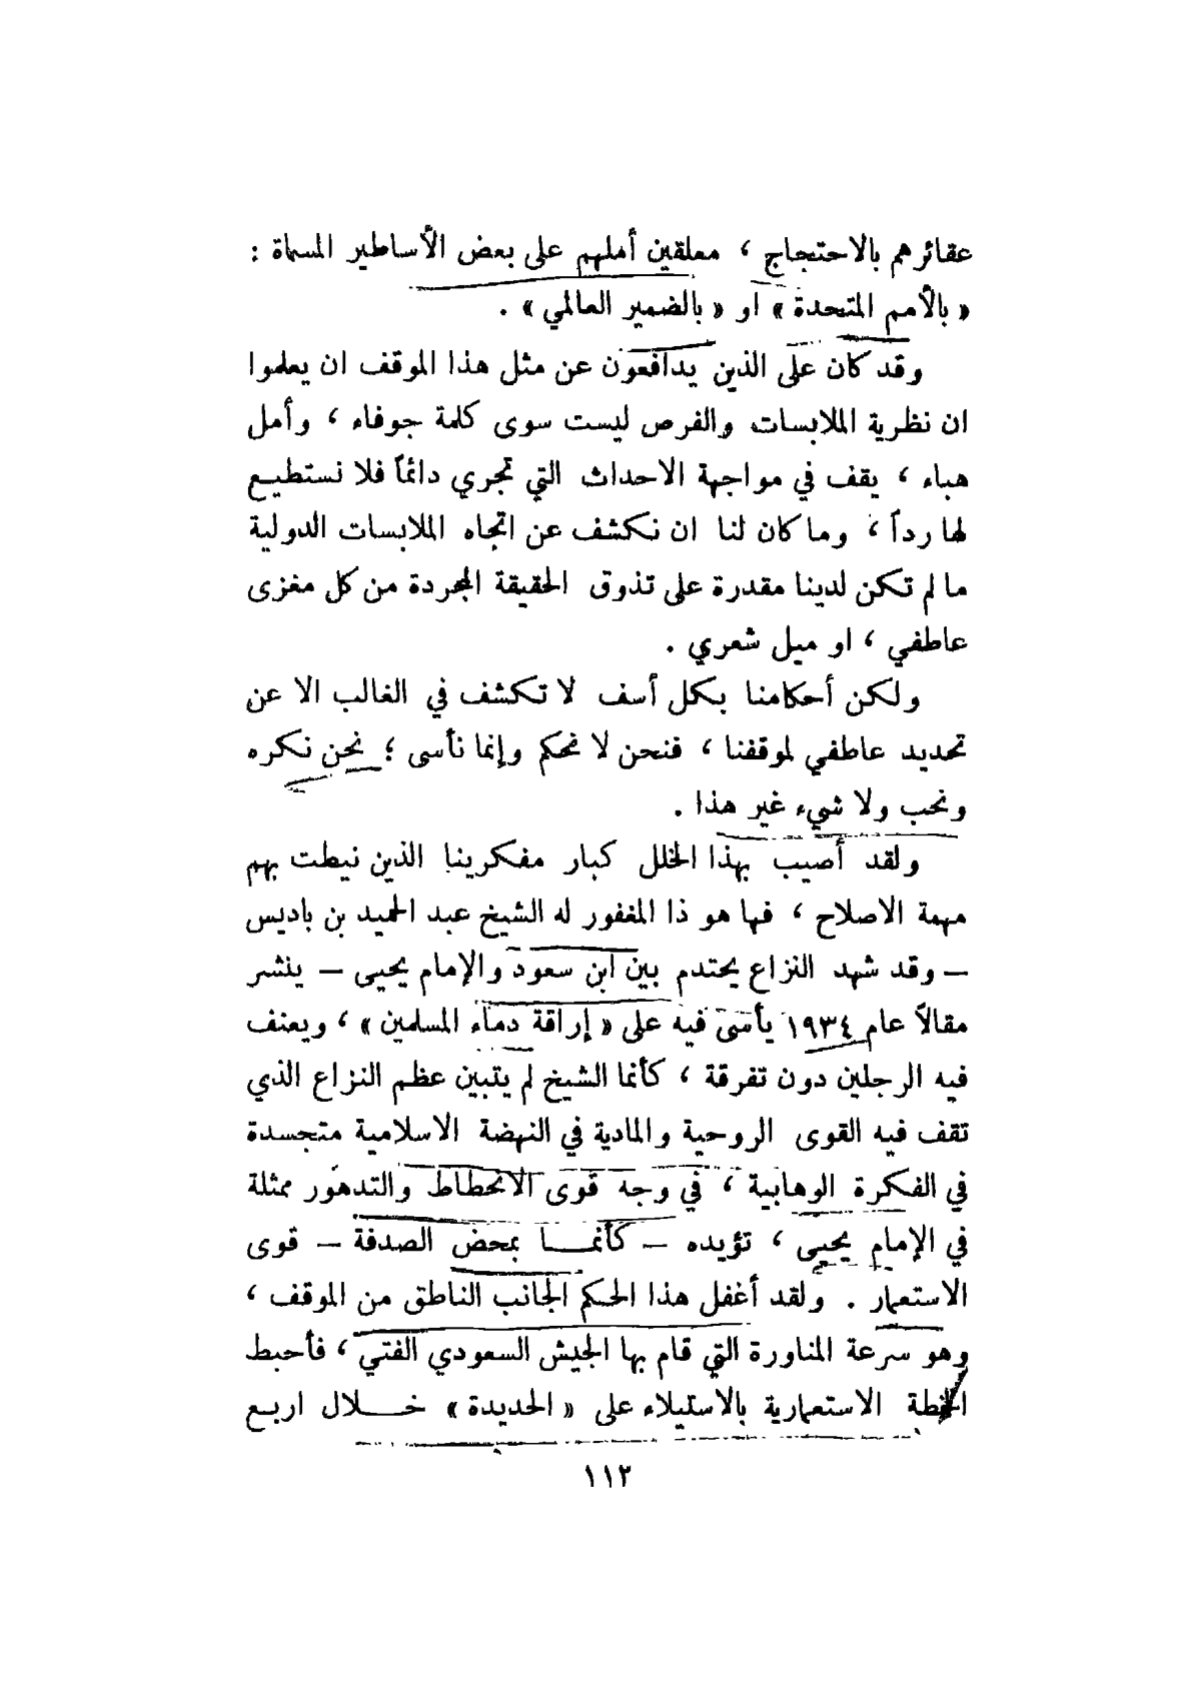 عقائرهم بالاحتجاج ، معلقين أملهم على بعض الأساطير المسماة :
« بالأمم المتحدة » او « بالضمير العالمي » .
وقد كان على الذين يدافعون عن مثل هذا الموقف ان يعلموا
ان نظرية الملابسات والفرص ليست سوى كلمة جوفاء ، وأمل
هباء ، يقف في مواجهة الاحداث التي تجري دائماً فلا نستطيع
لها رداً ، وما كان لنا ان نكشف عن اتجاه الملابسات الدولية
ما لم تكن لدينا مقدرة على تذوق الحقيقة المجردة من كل مغزى
عاطفي ، او ميل شعري .
ولكن أحكامنا بكل أسف لا تكشف في الغالب الا عن
تحديد عاطفي لموقفنا ، فنحن لا نحكم وإنما نأسى ؛ نحن نكره
ونحب ولا شيء غير هذا .
ولقد أصيب بهذا الخلل كبار مفكرينا الذين نيطت بهم
مهمة الاصلاح ، فها هو ذا المغفور له الشيخ عبد الحميد بن باديس
– وقد شهد النزاع يحتدم بين ابن سعود والإمام يحيى – ينشر
مقالاً عام ١٩٣٤ يأسى فيه على « إراقة دماء المسلمين » ، ويعنف
فيه الرجلين دون تفرقة ، كأنما الشيخ لم يتبين عظم النزاع الذي
تقف فيه القوى الروحية والمادية في النهضة الاسلامية متجسدة
في الفكرة الوهابية ، في وجه قوى الانحطاط والتدهور ممثلة
في الإمام يحيى ، تؤيده – كأنمـــا بمحض الصدفة – قوى
الاستعمار . ولقد أغفل هذا الحكم الجانب الناطق من الموقف ،
وهو سرعة المناورة التي قام بها الجيش السعودي الفتي ، فأحبط
الخطة الاستعمارية بالاستيلاء على « الحديدة » خـــلال اربع
١١٢